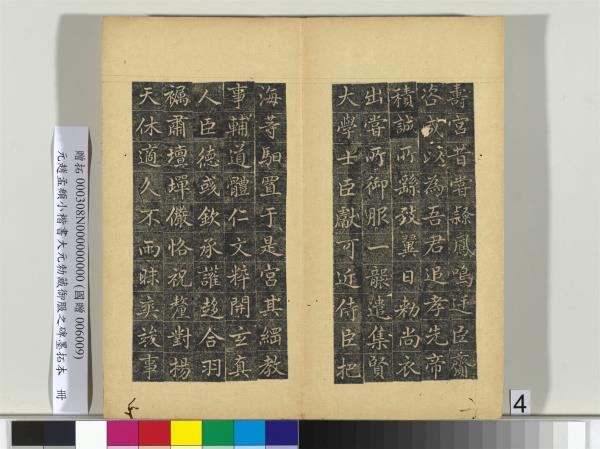 壽宮昔嘗隸鳳鳴迂臣齋
咨或以為吾君追孝先帝
積誠所繇致翼日勑尚衣
出嘗所御服一襲遣集賢
大學士臣獻可近侍臣把
海等馹置于是宮其綱教
事輔道體仁文粹開玄真
人臣德彧欽承讙趍合羽
褊肅壇墠儼恪祝釐對揚
天休適久不雨昧爽竣事
贈拓 000308N000000000 (國贈 006009)
元趙孟頫小楷書大元勑藏御服之碑墨拓本 冊
4